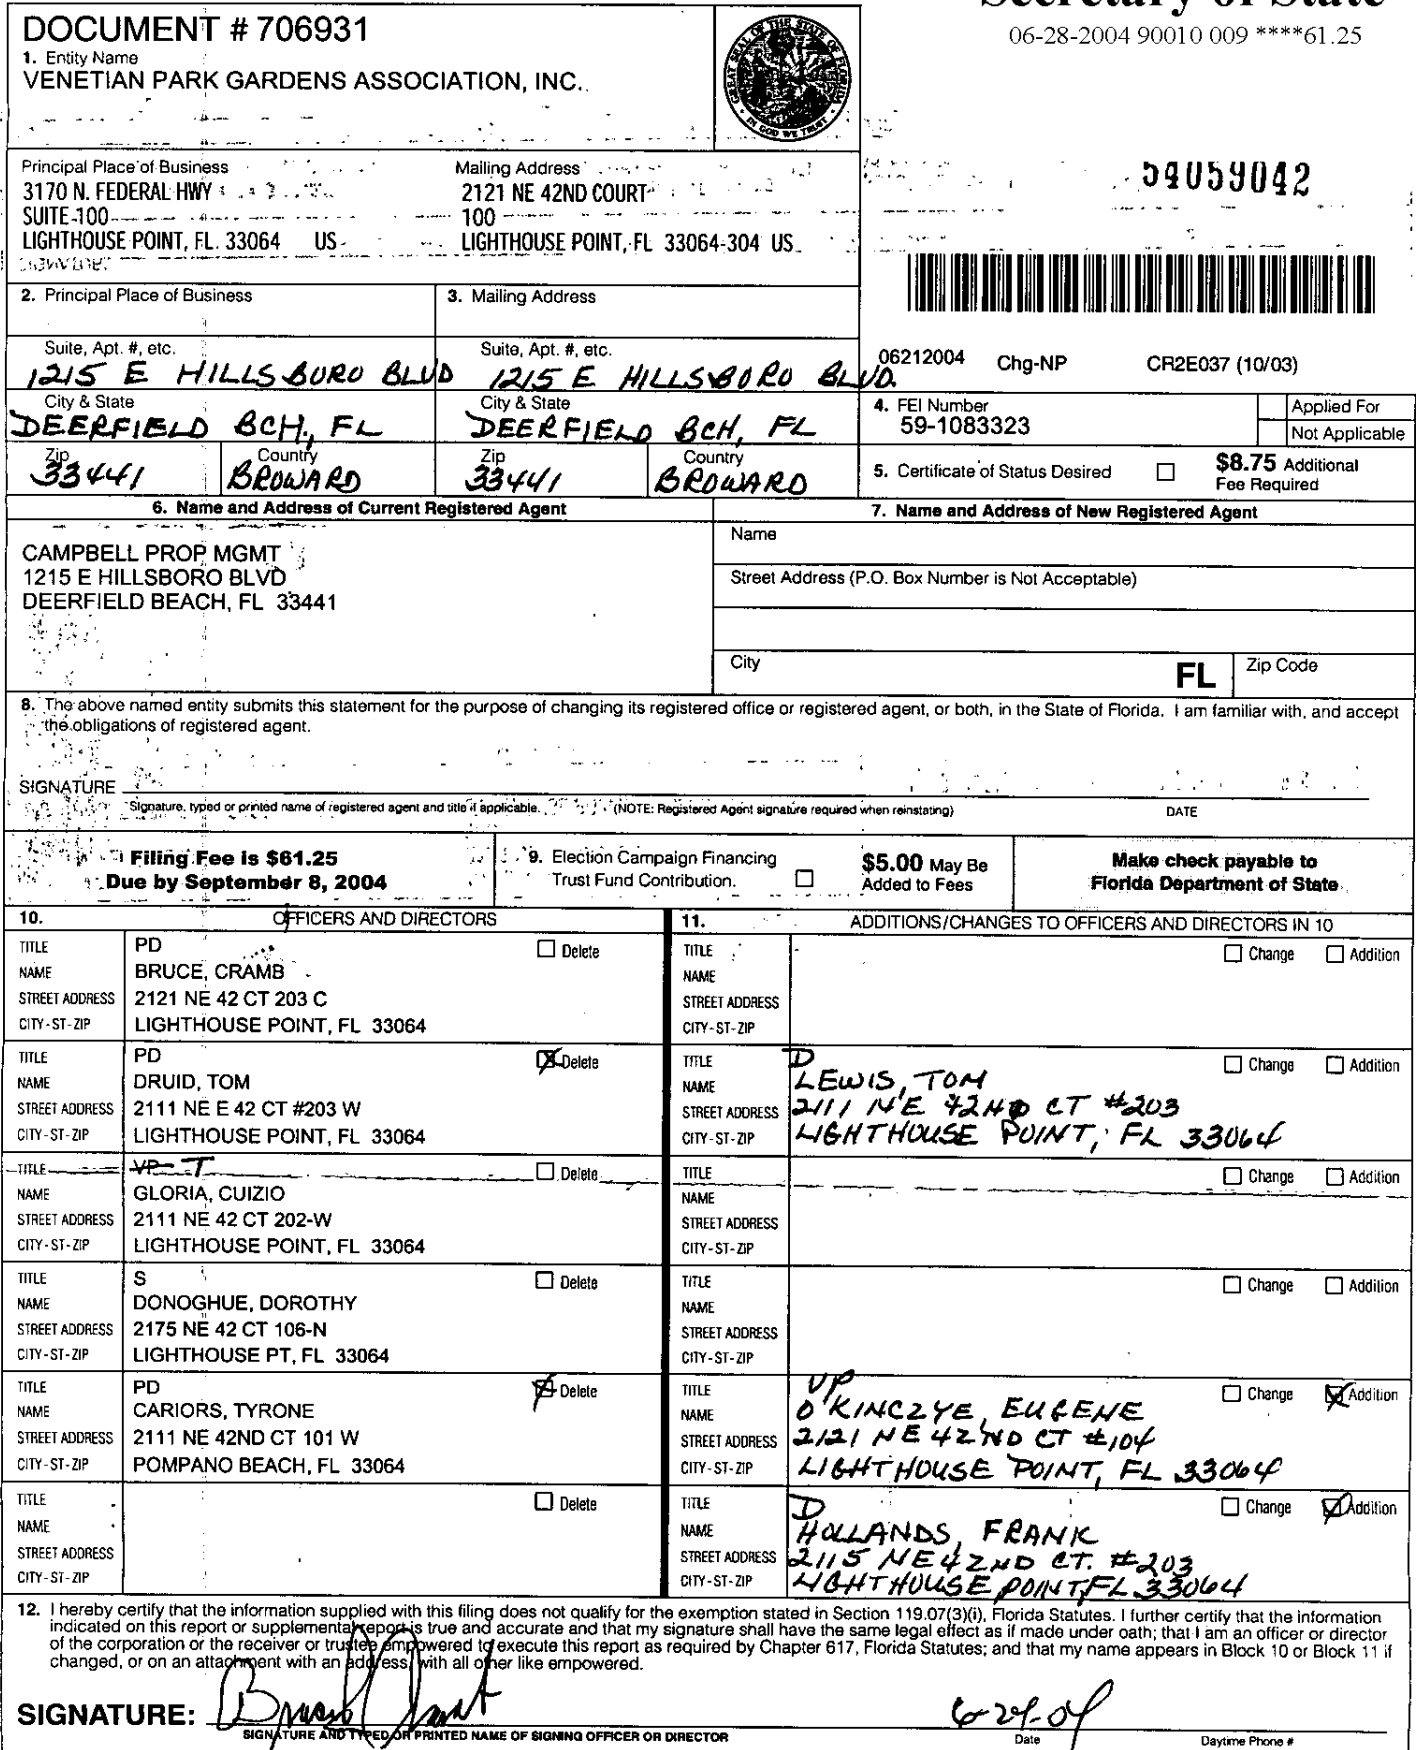 Secretary of State
06-28-2004 90010 009 ****61.25
DOCUMENT # 706931
1. Entity Name
VENETIAN PARK GARDENS ASSOCIATION, INC.
GREAT SEAL OF THE STATE OF FLORIDA
IN GOD WE TRUST
Principal Place of Business
3170 N. FEDERAL HWY
SUITE 100
LIGHTHOUSE POINT, FL. 33064 US
Mailing Address
2121 NE 42ND COURT
100
LIGHTHOUSE POINT, FL 33064-304 US
54059042
2. Principal Place of Business
3. Mailing Address
Suite, Apt. #, etc.
1215 E HILLSBORO BLVD
Suite, Apt. #, etc.
1215 E HILLSBORO BLVD.
City & State
DEERFIELD BCH., FL
City & State
DEERFIELD BCH, FL
Zip
33441
Country
BROWARD
Zip
33441
Country
BROWARD
06212004 Chg-NP CR2E037 (10/03)
4. FEI Number
59-1083323
Applied For
Not Applicable
5. Certificate of Status Desired
$8.75 Additional
Fee Required
6. Name and Address of Current Registered Agent
CAMPBELL PROP MGMT
1215 E HILLSBORO BLVD
DEERFIELD BEACH, FL 33441
7. Name and Address of New Registered Agent
Name
Street Address (P.O. Box Number is Not Acceptable)
City
FL
Zip Code
8. The above named entity submits this statement for the purpose of changing its registered office or registered agent, or both, in the State of Florida. I am familiar with, and accept
the obligations of registered agent.
SIGNATURE
Signature, typed or printed name of registered agent and title if applicable. (NOTE: Registered Agent signature required when reinstating) DATE
Filing Fee is $61.25
Due by September 8, 2004
9. Election Campaign Financing
Trust Fund Contribution.
$5.00 May Be
Added to Fees
Make check payable to
Florida Department of State
10. OFFICERS AND DIRECTORS
TITLE PD Delete
NAME BRUCE, CRAMB
STREET ADDRESS 2121 NE 42 CT 203 C
CITY-ST-ZIP LIGHTHOUSE POINT, FL 33064
TITLE PD Delete
NAME DRUID, TOM
STREET ADDRESS 2111 NE E 42 CT #203 W
CITY-ST-ZIP LIGHTHOUSE POINT, FL 33064
TITLE VP T Delete
NAME GLORIA, CUIZIO
STREET ADDRESS 2111 NE 42 CT 202-W
CITY-ST-ZIP LIGHTHOUSE POINT, FL 33064
TITLE S Delete
NAME DONOGHUE, DOROTHY
STREET ADDRESS 2175 NE 42 CT 106-N
CITY-ST-ZIP LIGHTHOUSE PT, FL 33064
TITLE PD Delete
NAME CARIORS, TYRONE
STREET ADDRESS 2111 NE 42ND CT 101 W
CITY-ST-ZIP POMPANO BEACH, FL 33064
TITLE Delete
NAME
STREET ADDRESS
CITY-ST-ZIP
11. ADDITIONS/CHANGES TO OFFICERS AND DIRECTORS IN 10
TITLE Change Addition
NAME
STREET ADDRESS
CITY-ST-ZIP
TITLE D Change Addition
NAME LEWIS, TOM
STREET ADDRESS 2111 NE 42ND CT #203
CITY-ST-ZIP LIGHTHOUSE POINT, FL 33064
TITLE Change Addition
NAME
STREET ADDRESS
CITY-ST-ZIP
TITLE Change Addition
NAME
STREET ADDRESS
CITY-ST-ZIP
TITLE VP Change Addition
NAME O'KINCZYE, EUGENE
STREET ADDRESS 2121 NE 42ND CT #104
CITY-ST-ZIP LIGHTHOUSE POINT, FL 33064
TITLE D Change Addition
NAME HOLLANDS, FRANK
STREET ADDRESS 2115 NE 42ND CT. #203
CITY-ST-ZIP LIGHTHOUSE POINT, FL 33064
12. I hereby certify that the information supplied with this filing does not qualify for the exemption stated in Section 119.07(3)(i), Florida Statutes. I further certify that the information
indicated on this report or supplemental report is true and accurate and that my signature shall have the same legal effect as if made under oath; that I am an officer or director
of the corporation or the receiver or trustee empowered to execute this report as required by Chapter 617, Florida Statutes; and that my name appears in Block 10 or Block 11 if
changed, or on an attachment with an address, with all other like empowered.
SIGNATURE:
6-24-04
SIGNATURE AND TYPED OR PRINTED NAME OF SIGNING OFFICER OR DIRECTOR Date Daytime Phone #